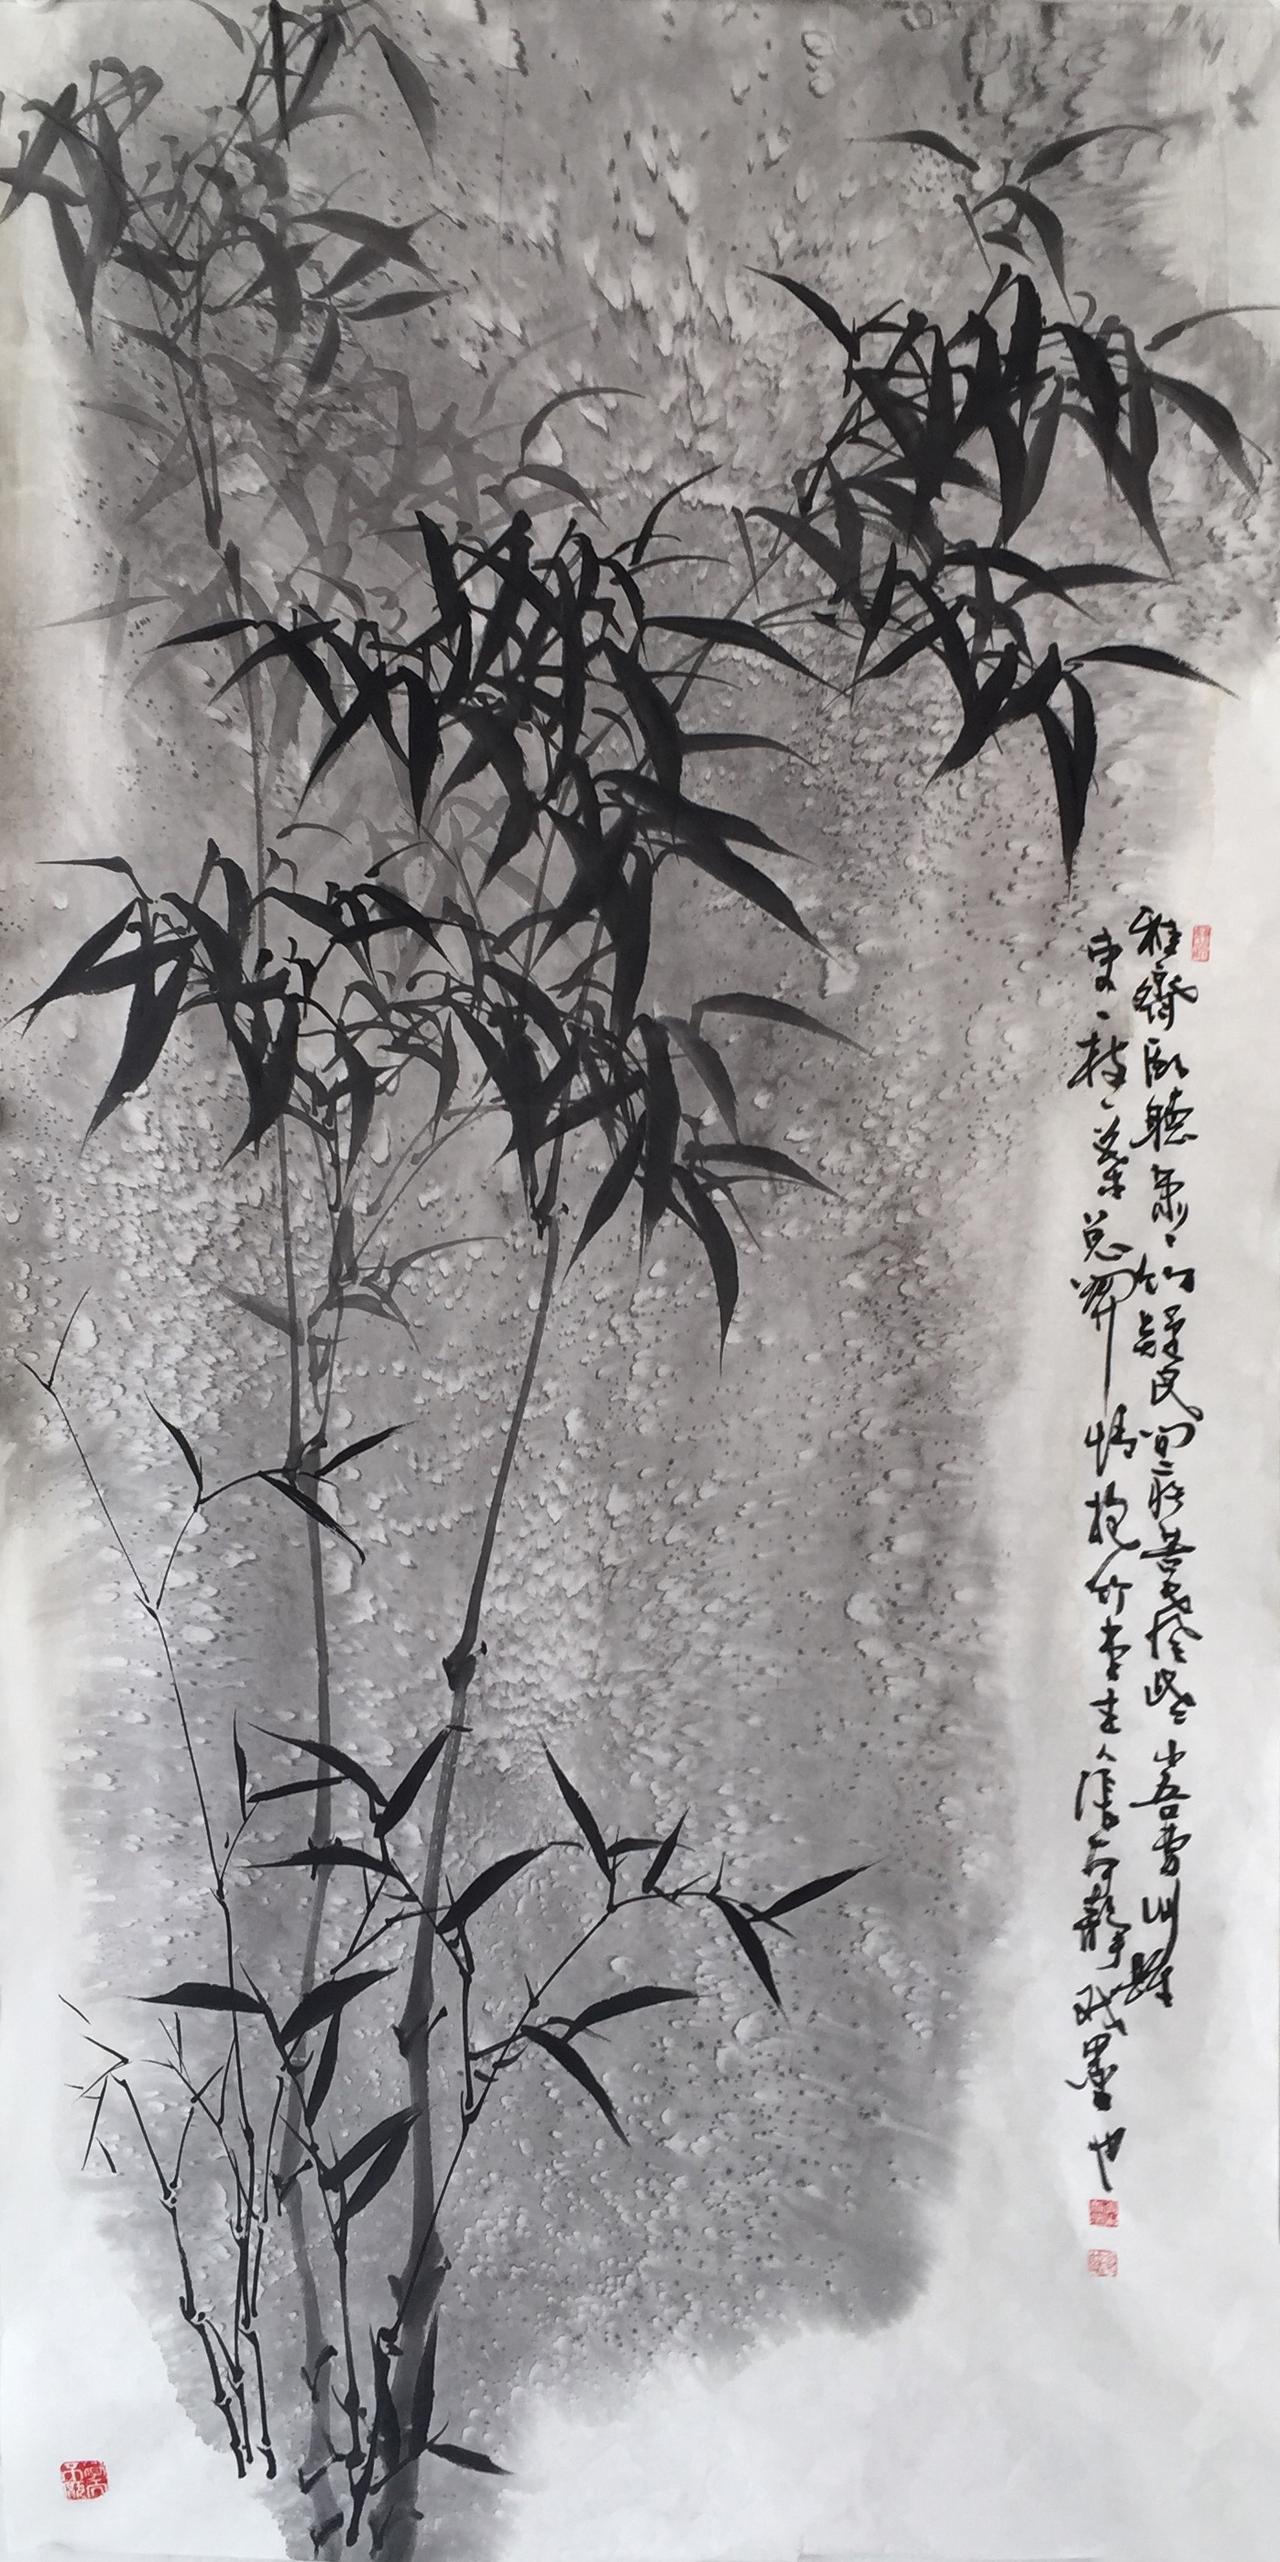 衙齋臥聽蕭蕭竹疑是民間疾苦聲些小吾曹州縣
吏一枝一葉總關情抱竹堂主人戲墨也